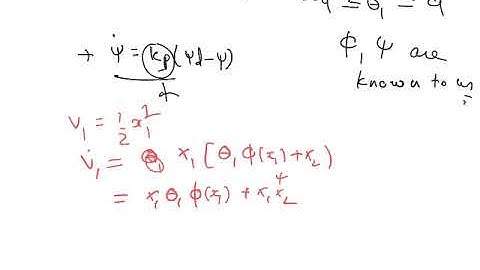 = θ₁ =
→ ψ̇ = kp (ψd-ψ)
φ, ψ are
known to us
V₁ = 1/2 x₁²
V̇₁ = x₁ [θ₁ φ(x₁) + x₂)
= x₁ θ₁ φ(x₁) + x₁ x₂